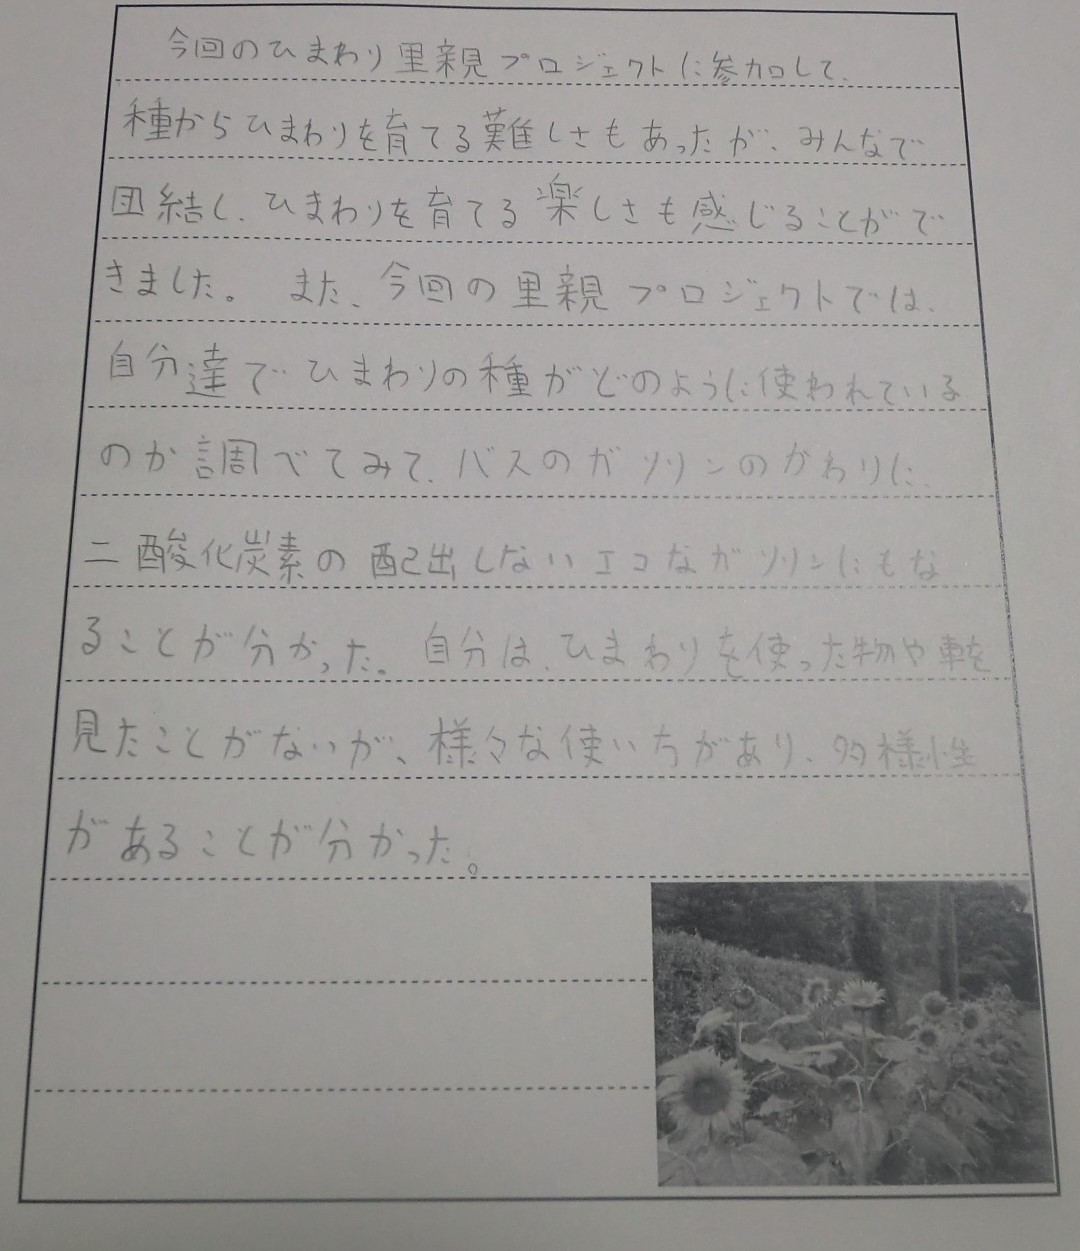 今回のひまわり里親プロジェクトに参加して、
種からひまわりを育てる難しさもあったが、みんなで
団結し、ひまわりを育てる楽しさも感じることがで
きました。また、今回の里親プロジェクトでは、
自分達でひまわりの種がどのように使われている
のか調べてみて、バスのガソリンのかわりに、
二酸化炭素の配出しないエコなガソリンにもな
ることが分かった。自分は、ひまわりを使った物や車を
見たことがないが、様々な使いちがあり、多様性
があることが分かった。